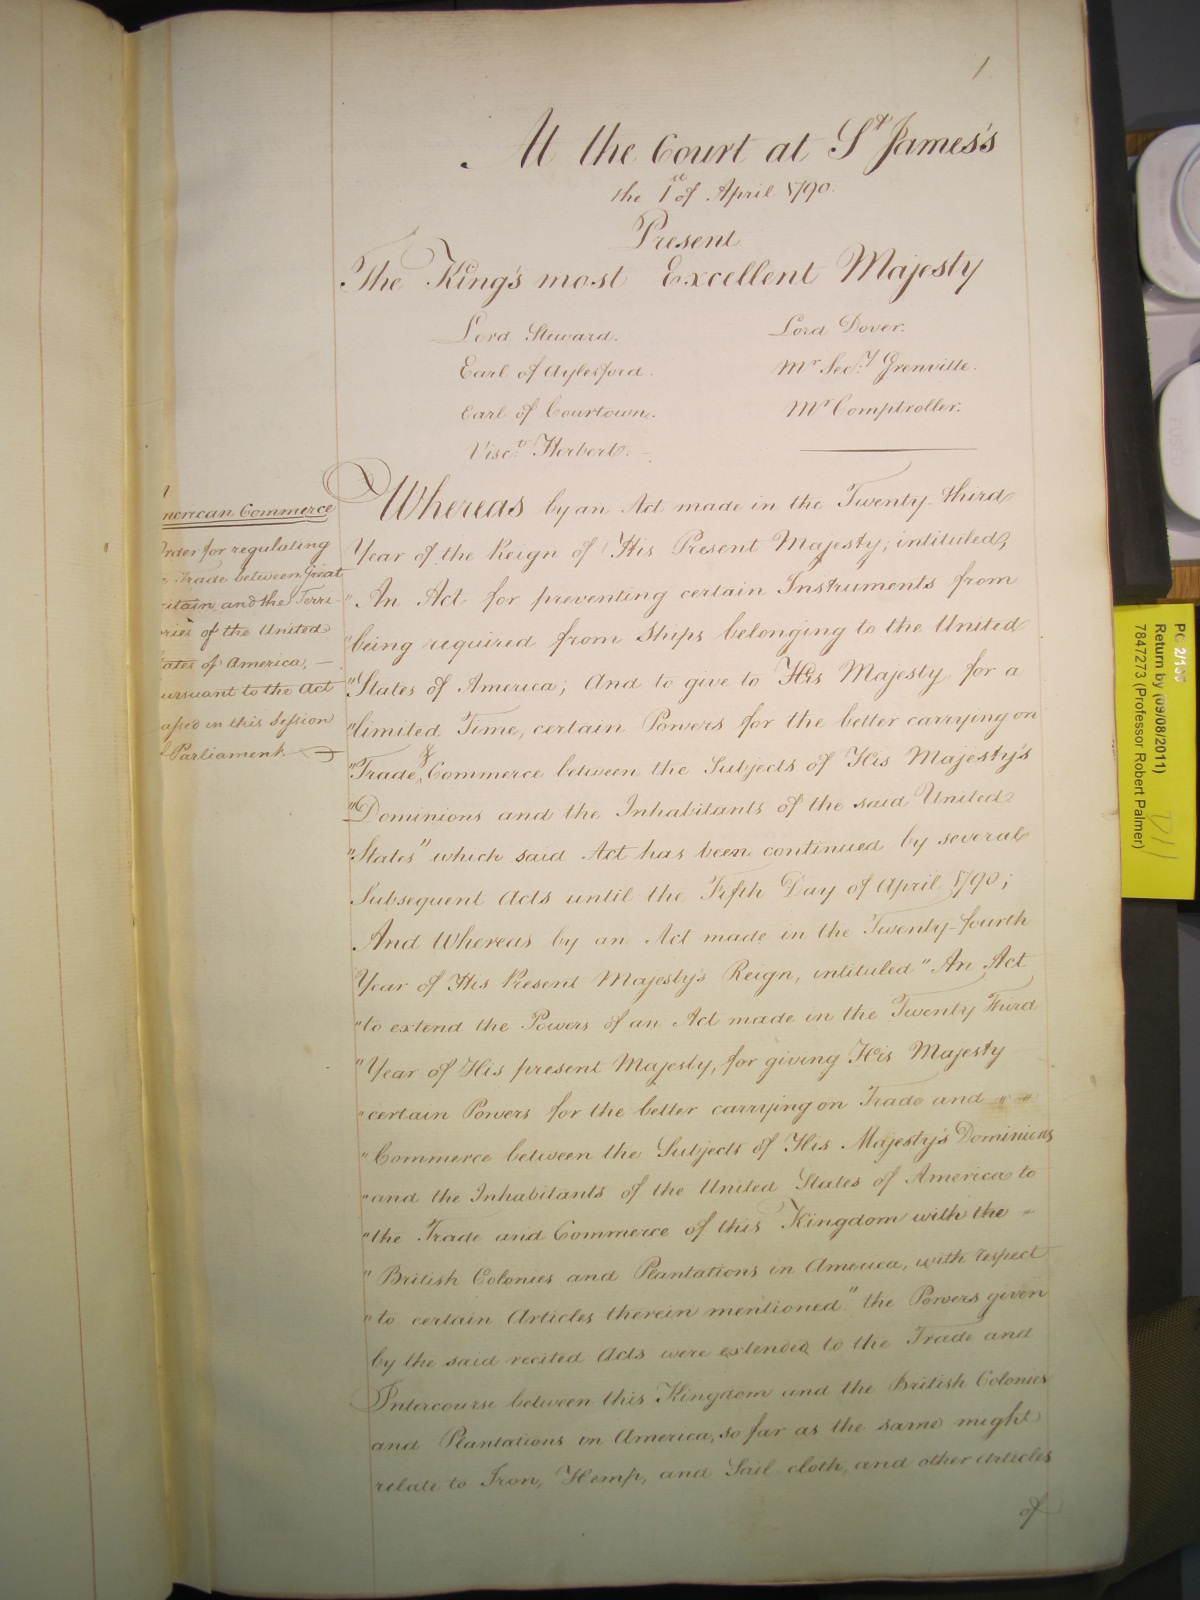 1
At the Court at St James's
the 1st of April 1790.
Present
The King's most Excellent Majesty
Lord Steward. Lord Dover.
Earl of Aylesford. Mr Secy Grenville.
Earl of Courtown. Mr Comptroller.
Visct Herbert.
merican Commerce
rder for regulating
Trade between Great
itain, and the Terri-
ries of the United
ates of America,
ursuant to the Act
assed in this Session
f Parliament
Whereas by an Act made in the Twenty-third
Year of the Reign of His Present Majesty, intituled,
"An Act for preventing certain Instruments from
"being required from Ships belonging to the United
"States of America; And to give to His Majesty for a
"limited Time, certain Powers for the better carrying on
"Trade & Commerce between the Subjects of His Majesty's
"Dominions and the Inhabitants of the said United
"States" which said Act has been continued by several
Subsequent Acts until the Fifth Day of April 1790;
And Whereas by an Act made in the Twenty-fourth
Year of His Present Majesty's Reign, intituled "An Act
"to extend the Powers of an Act made in the Twenty Third
"Year of His present Majesty, for giving His Majesty
"certain Powers for the better carrying on Trade and
"Commerce between the Subjects of His Majesty's Dominions
"and the Inhabitants of the United States of America to
"the Trade and Commerce of this Kingdom with the
"British Colonies and Plantations in America, with respect
"to certain Articles therein mentioned" the Powers given
by the said recited Acts were extended to the Trade and
Intercourse between this Kingdom and the British Colonies
and Plantations in America, so far as the same might
relate to Iron, Hemp, and Sail-cloth, and other Articles
of
PC 2/135
Return by (09/08/2011)
7847273 (Professor Robert Palmer)